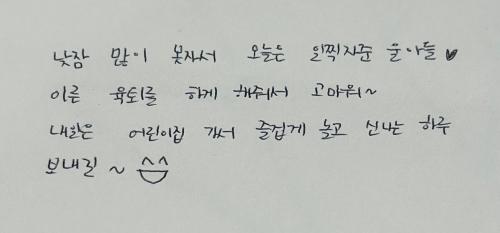 낮잠 많이 못자서 오늘은 일찍자준 울아들 ♥
이른 육퇴를 하게 해줘서 고마워~
내일은 어린이집 가서 즐겁게 놀고 신나는 하루
보내길 ~ ^^